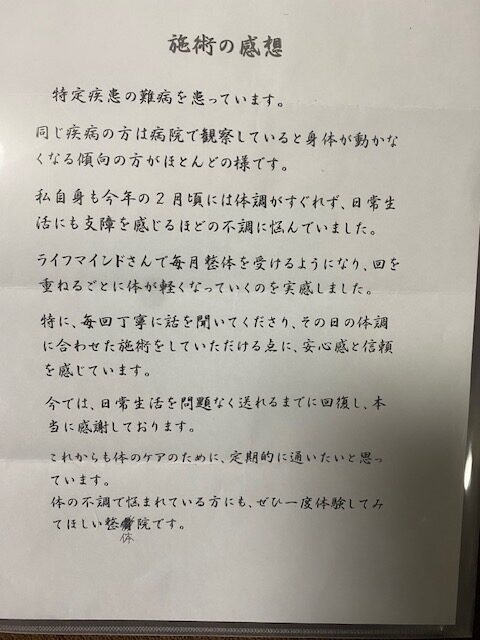 施術の感想
特定疾患の難病を患っています。
同じ疾病の方は病院で観察していると身体が動かな
くなる傾向の方がほとんどの様です。
私自身も今年の2月頃には体調がすぐれず、日常生
活にも支障を感じるほどの不調に悩んでいました。
ライフマインドさんで毎月整体を受けるようになり、回を
重ねるごとに体が軽くなっていくのを実感しました。
特に、毎回丁寧に話を聞いてくださり、その日の体調
に合わせた施術をしていただける点に、安心感と信頼
を感じています。
今では、日常生活を問題なく送れるまでに回復し、本
当に感謝しております。
これからも体のケアのために、定期的に通いたいと思っ
ています。
体の不調で悩まれている方にも、ぜひ一度体験してみ
てほしい整院です。
体